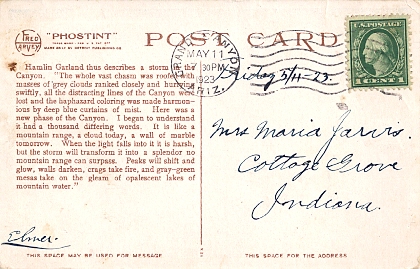 FRED HARVEY
"PHOSTINT"
MADE ONLY BY DETROIT PUBLISHING CO.
POST CARD
Hamlin Garland thus describes a storm in the
Canyon. "The whole vast chasm was roofed with
masses of grey clouds ranked closely and hurrying
swiftly, all the distracting lines of the Canyon were
lost and the haphazard coloring was made harmon-
ious by deep blue curtains of mist. Here was a
new phase of the Canyon. I began to understand
it had a thousand differing words. It is like a
mountain range, a cloud today, a wall of marble
tomorrow. When the light falls into it it is harsh,
but the storm will transform it into a splendor no
mountain range can surpass. Peaks will shift and
glow, walls darken, crags take fire, and gray-green
mesas take on the gleam of opalescent lakes of
mountain water."
Elmer.
THIS SPACE MAY BE USED FOR MESSAGE
GRAND CANYON
MAY 11
30PM
1923
ARIZ.
U.S. POSTAGE
1 CENT 1
Friday 5/11-23.
Mrs Maria Jarvis.
Cottage Grove
Indiana.
THIS SPACE IS FOR THE ADDRESS